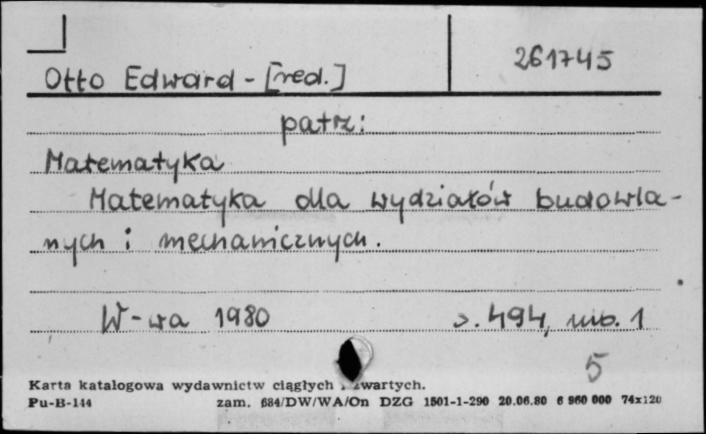 261745
Otto Edward - [red.]
patrz:
Matematyka
Matematyka dla wydziałów budowla-
nych i mechanicznych.
W-wa 1980 s. 494, nlb. 1
5
Karta katalogowa wydawnictw ciągłych i zwartych.
Pu-B-144 zam. 684/DW/WA/On DZG 1501-1-290 20.06.80 6 960 000 74x120